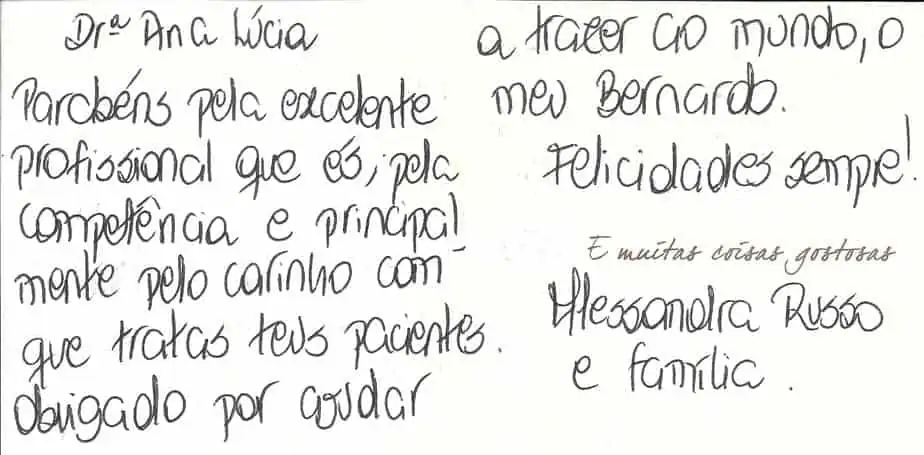 Drª Ana Lúcia
Parabéns pela excelente
profissional que és, pela
competência e principal
mente pelo carinho com
que tratas teus pacientes.
Obrigado por ajudar
a trazer ao mundo, o
meu Bernardo.
Felicidades sempre!
E muitas coisas gostosas
Alessandra Russo
e família.